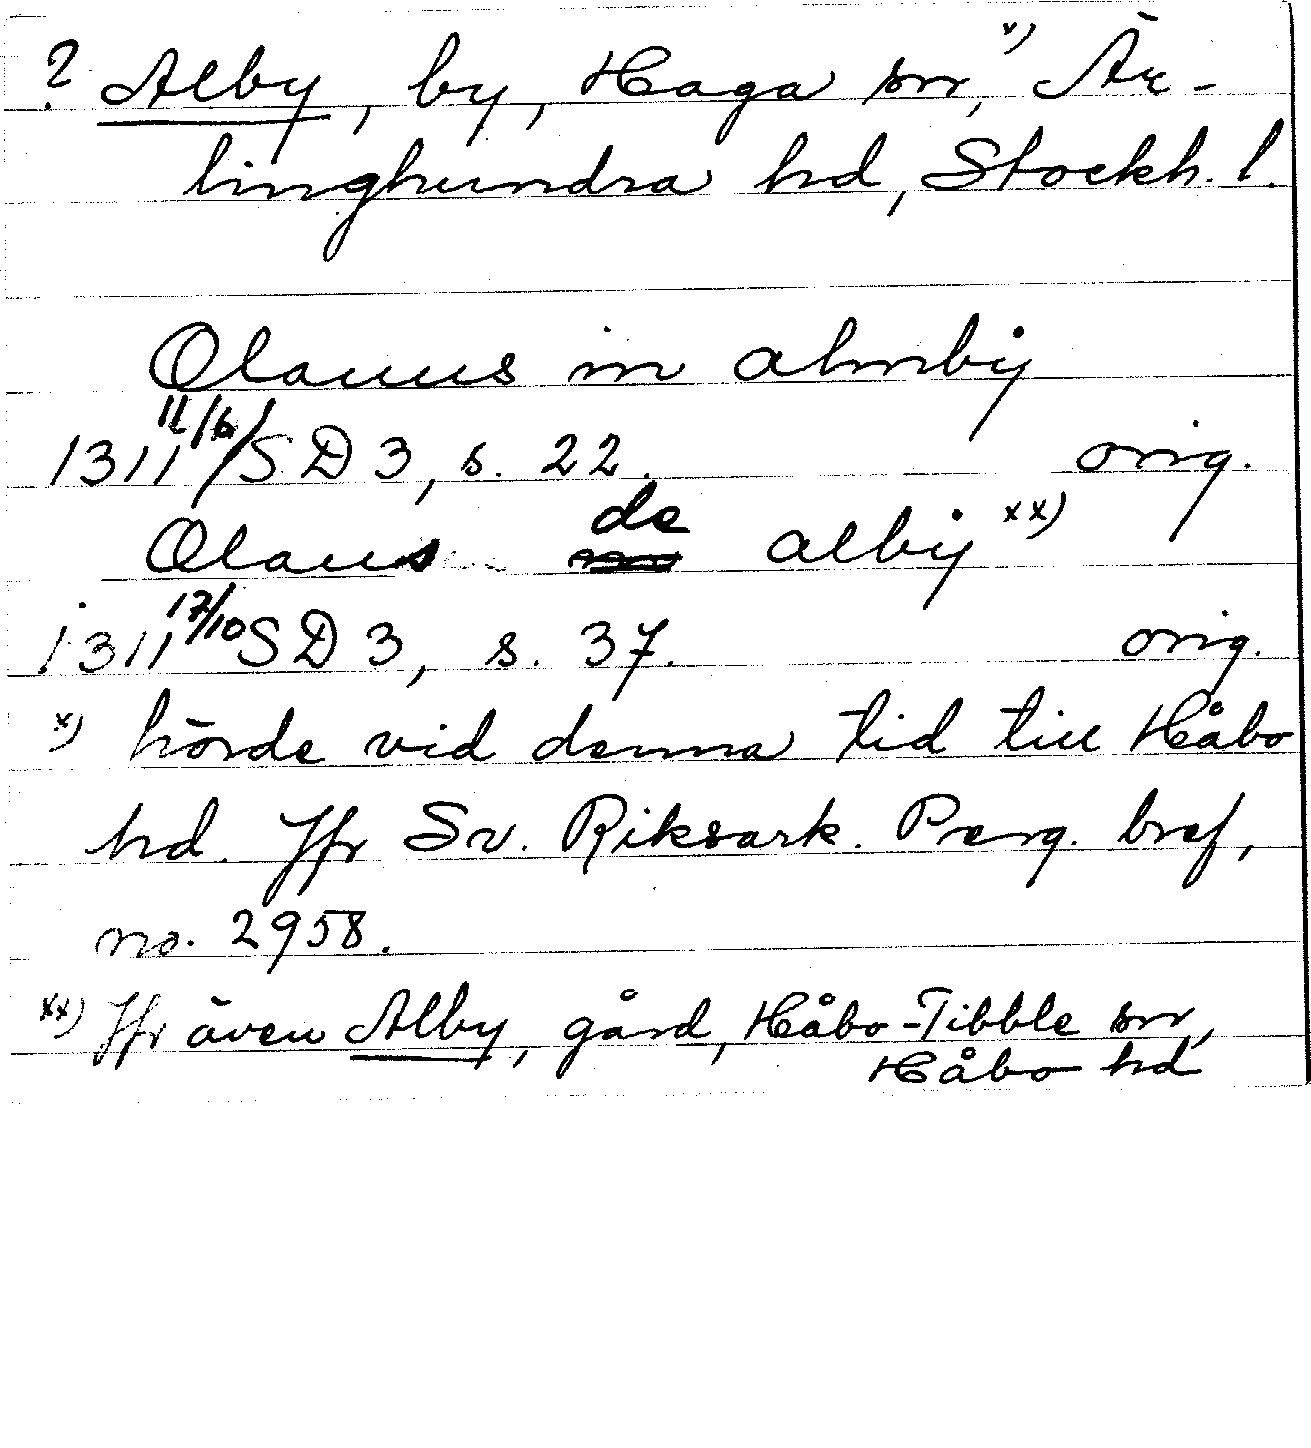 ? Alby, by, Haga sn, x) Är-
linghundra hd, Stockh. l.
Olauus in almby
1311 11/6/ SD 3, s. 22. orig.
Olaus de alby xx)
1311 17/10 SD 3, s. 37. orig.
x) hörde vid denna tid till Håbo
hd. Jfr Sv. Riksark. Perg. bref,
no. 2958.
xx) Jfr även Alby, gård, Håbo-Tibble sn,
Håbo hd